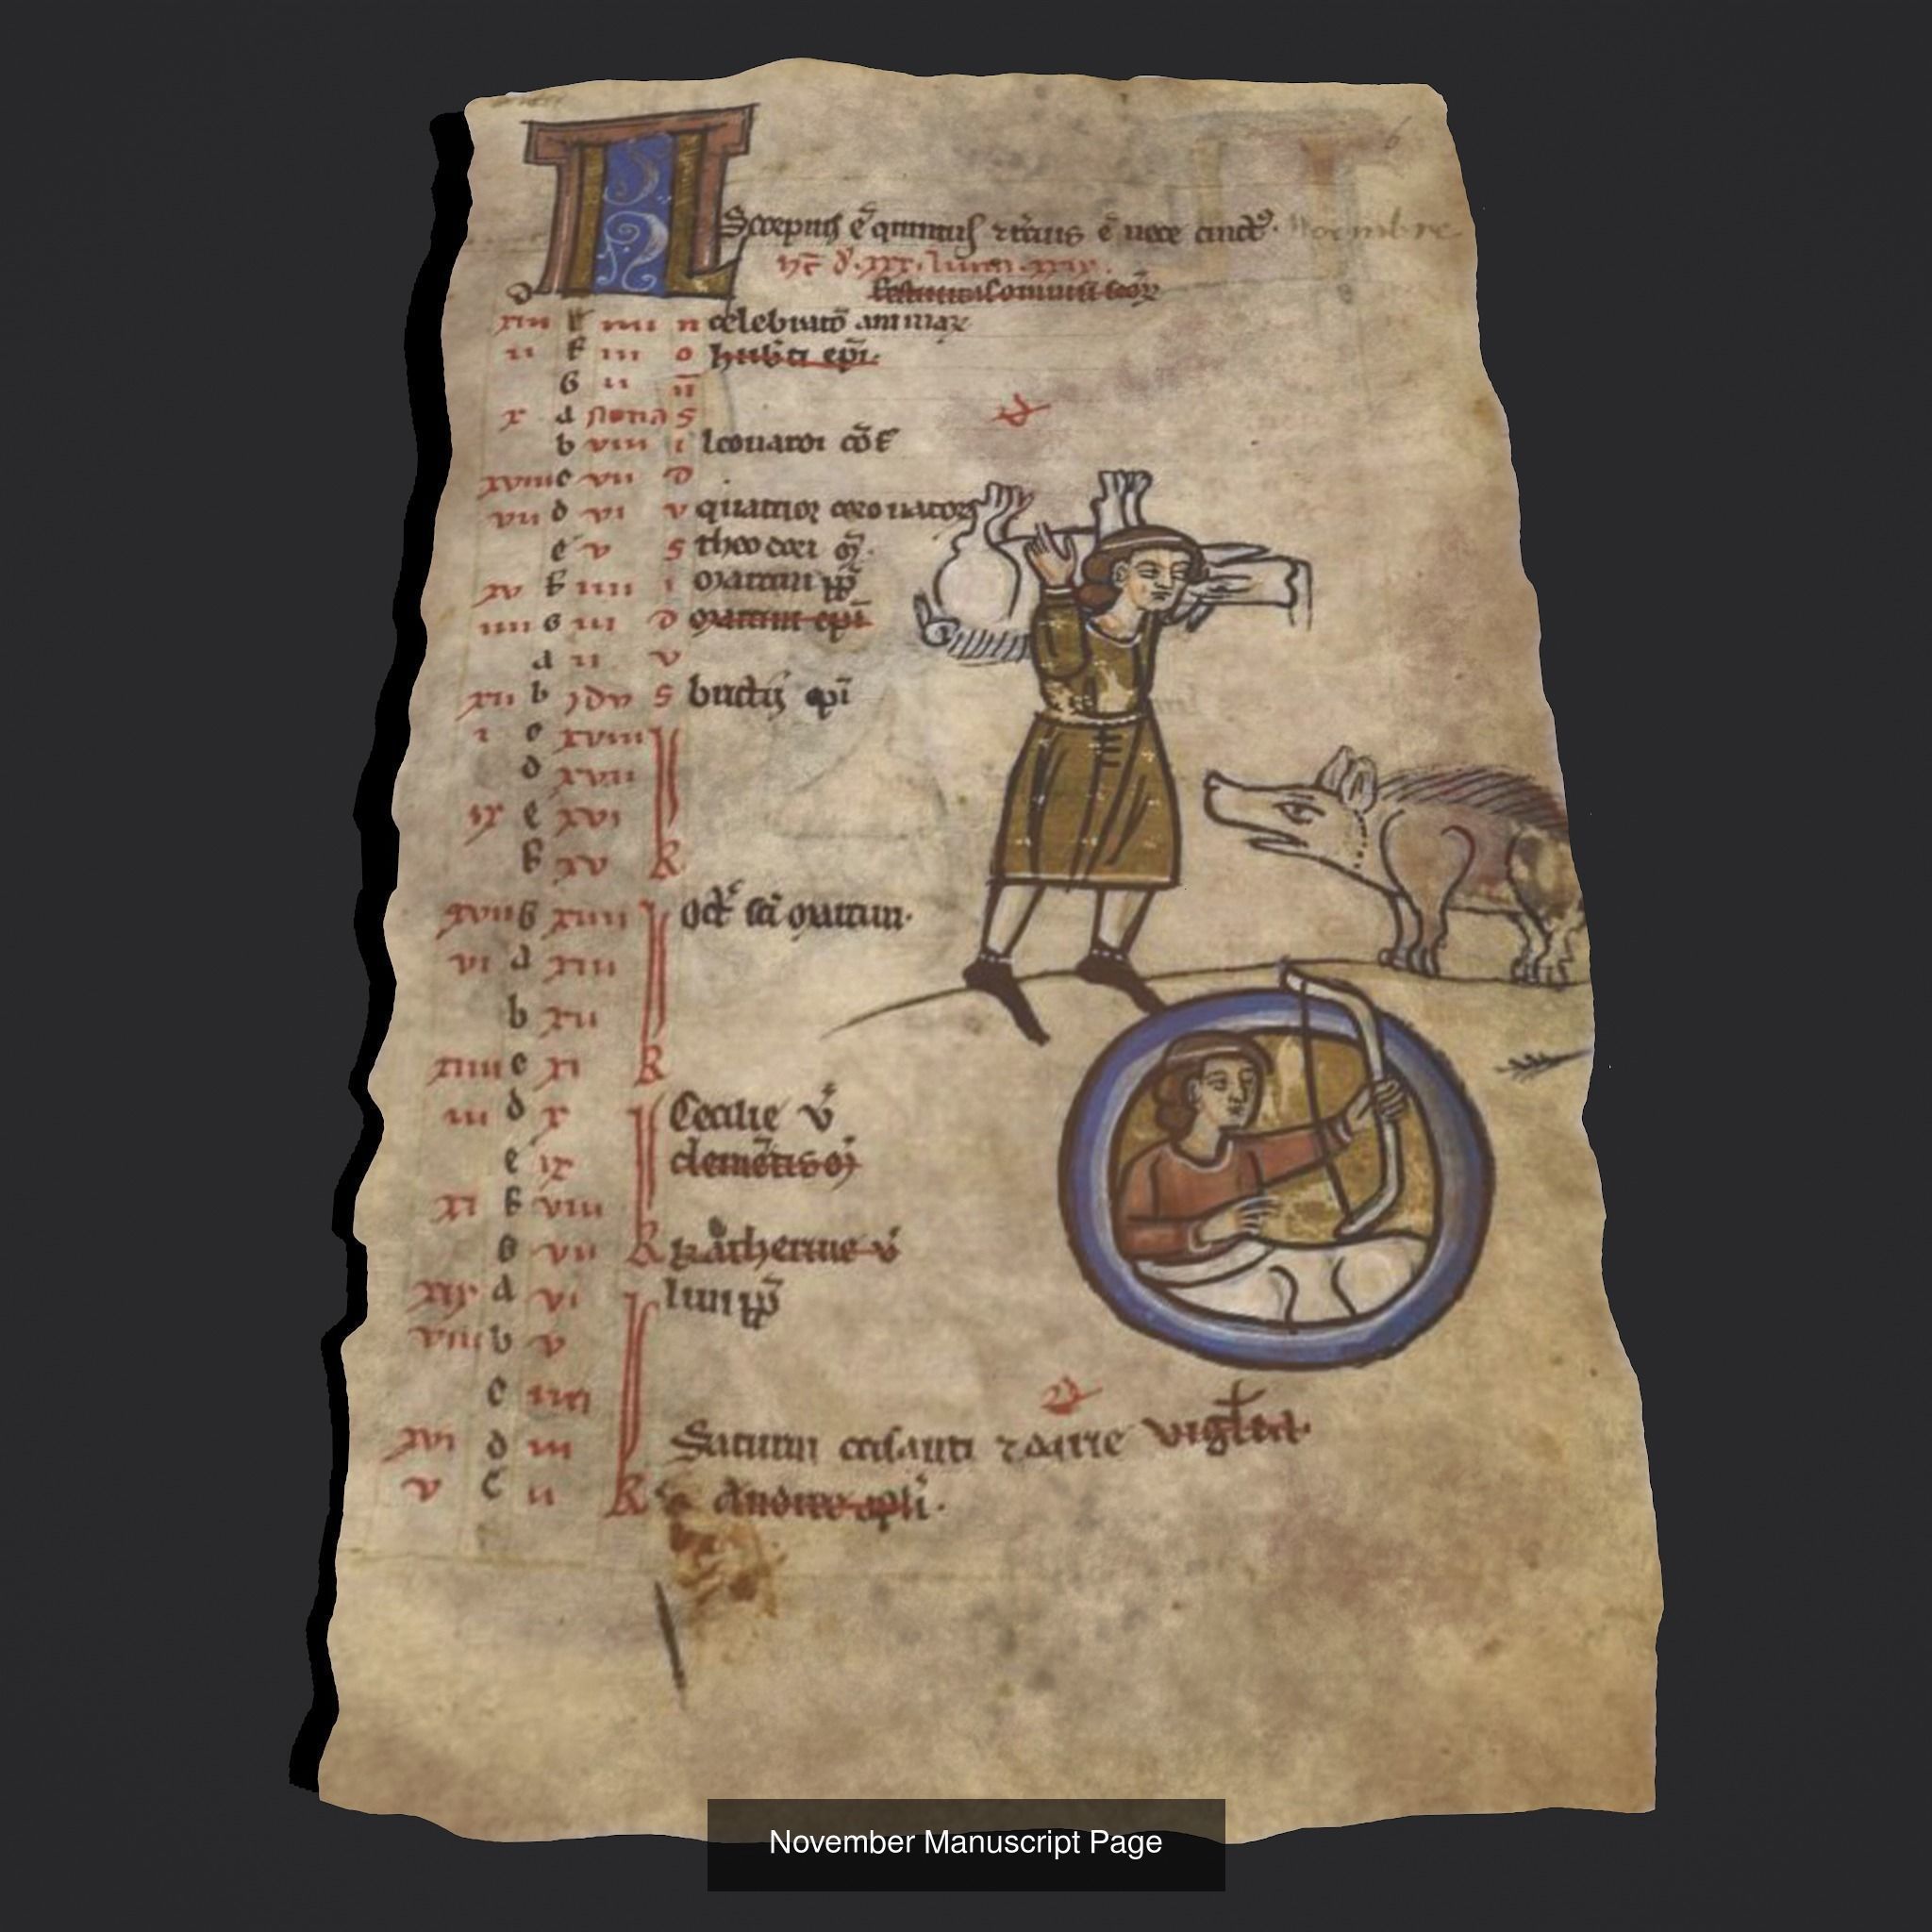 Scorpius ē quintus ⁊ t̃cius ē nece cinct⁹. Novembre
d
xiii iiii n celebratō animaꝝ
ii f iii o hub̃ti ep̄i.
G ii
x A Nonas S
b viii i leonardi cōf
xviii c vii D
vii d vi v quatuor coronatorꝝ
e v S theodori m̃.
xv f iiii i martini pp̃
iiii G iii D martini ep̄i
A ii v
xii b idus S bricii ep̄i
i c xviii
d xvii
ix e xvi
f xv R
xvii G xiiii Oct̃ sc̃i martini.
vi A xiii
b xii
xiiii c xi R
iii d x Cecilie v̓
e ix clemētis m̃
xi f viii
G vii R katherine v̓
xix A vi lini pp̃
viii b v
c iiii
xvi d iii Saturnini crisanti ⁊ darie vigl̃ia.
v e ii R Andree apl̓i.
November Manuscript Page